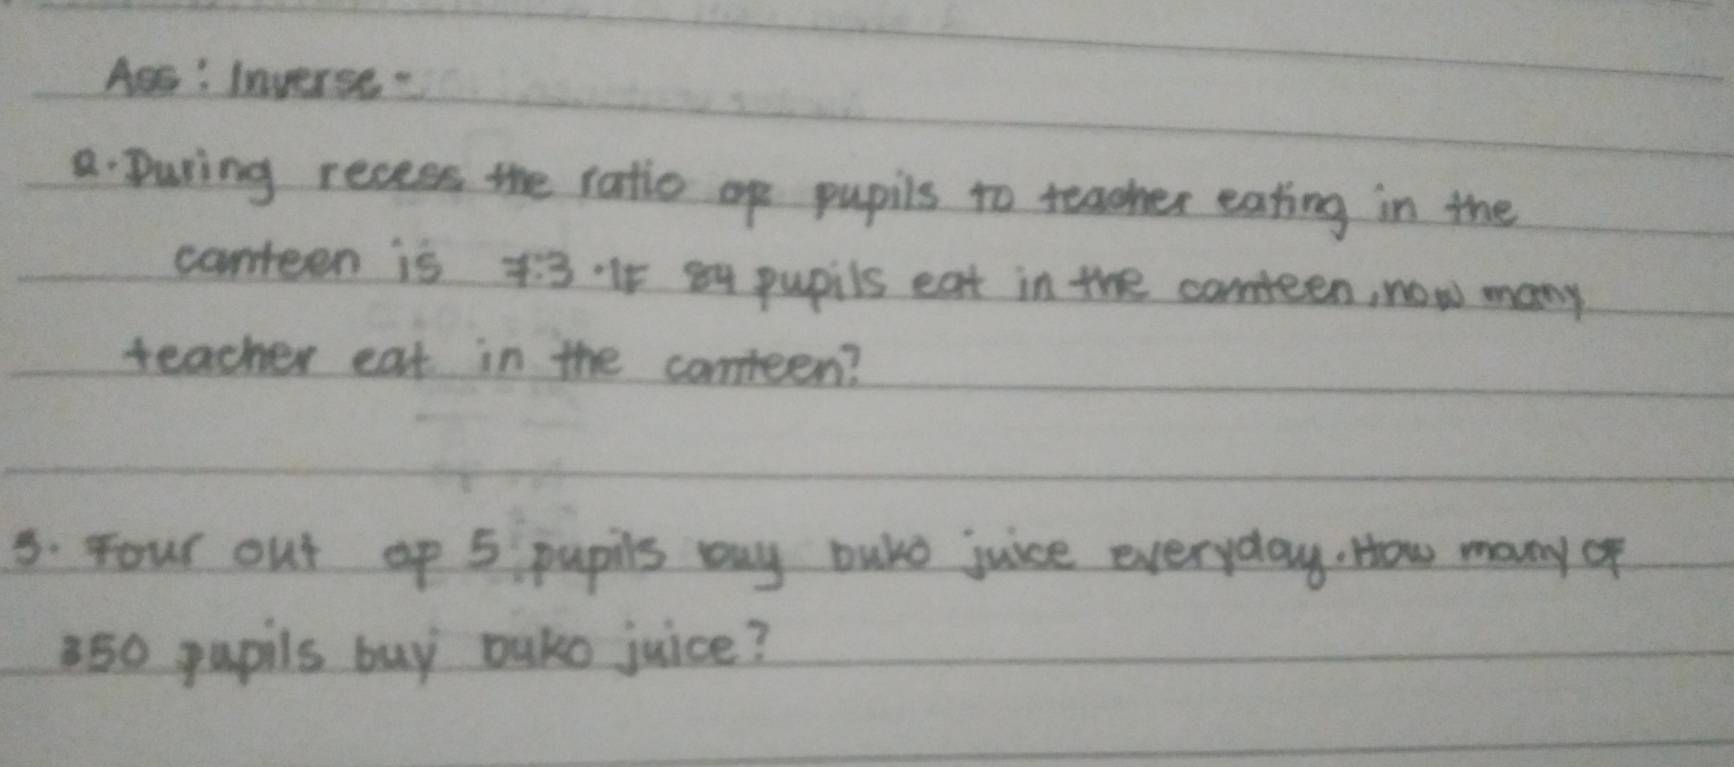 Ass: Inverse-
a. During recess the ratio of pupils to teacher eating in the
canteen is 7:3. If 84 pupils eat in the canteen, how many
teacher eat in the canteen?
3. Four out of 5 pupils buy buko juice everyday. How many of
350 pupils buy buko juice?